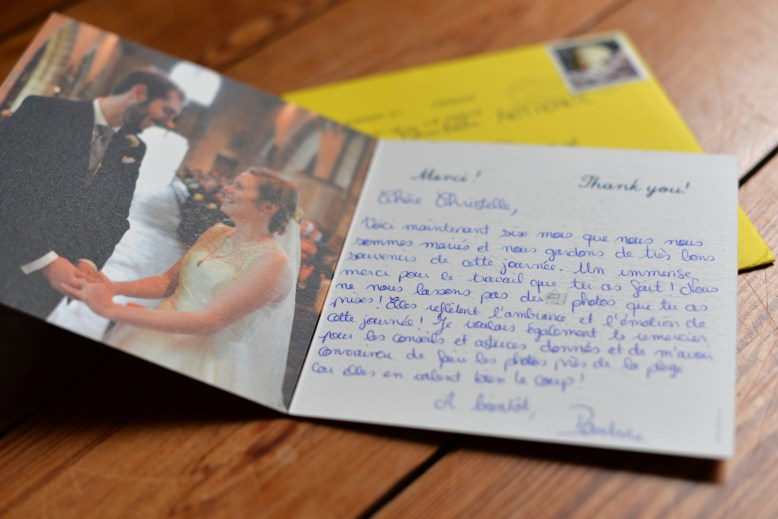 Merci! Thank you!
Chère Christelle,
Voici maintenant six mois que nous nous
sommes mariés et nous gardons de très bons
souvenirs de cette journée. Un immense
merci pour le travail que tu as fait! Nous
ne nous lassons pas des photos que tu as
prises! Elles reflètent l'ambiance et l'émotion de
cette journée! Je voulais également te remercier
pour les conseils et astuces donnés et de m'avoir
convaincu de faire les photos près de la plage
car elles en valent bien le coup!
A bientôt,
Pauline